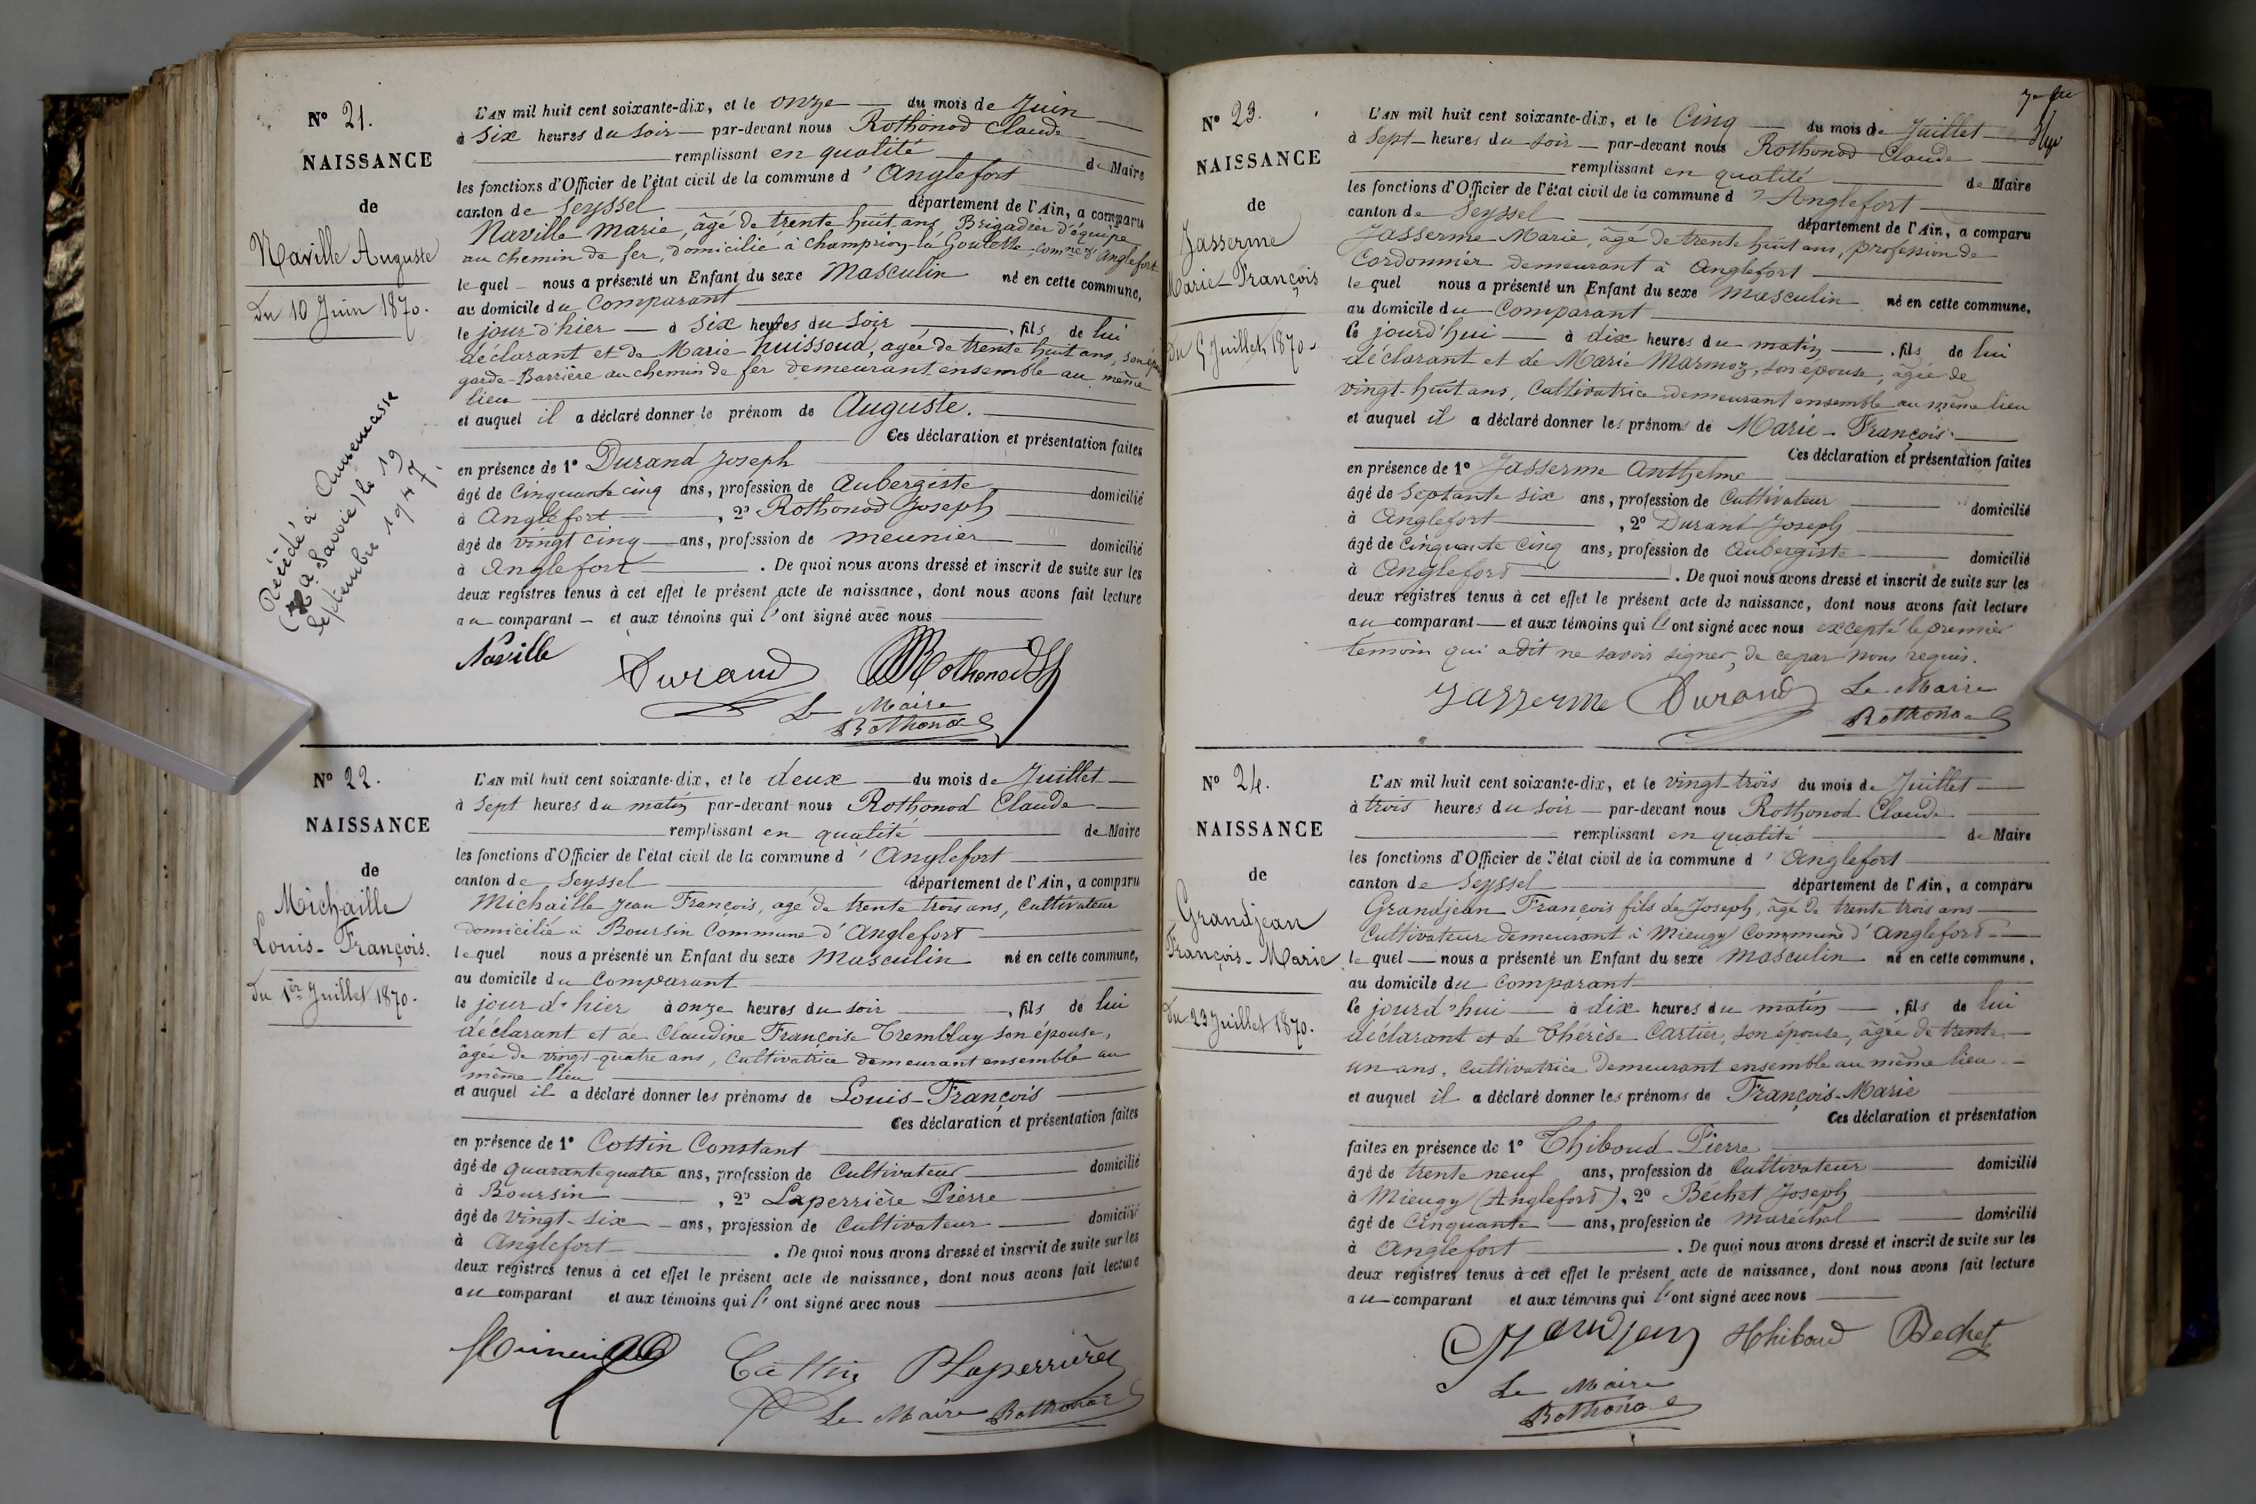 N° 21.
NAISSANCE
de
Naville Auguste
Du 10 Juin 1870.
Décédé à Annemasse
(Hte Savoie) le 19
septembre 1947.
L'AN mil huit cent soixante-dix, et le onze du mois de Juin
à six heures du soir par-devant nous Rothonod Claude
remplissant en qualité de Maire
les fonctions d'Officier de l'état civil de la commune d'Anglefort
canton de Seyssel département de l'Ain, a comparu
Naville Marie, âgé de trente huit ans, Brigadier d'équipe
au chemin de fer, domicilié à Champrion-la Goulette, comne d'Anglefort
lequel nous a présenté un Enfant du sexe Masculin né en cette commune,
au domicile du Comparant
le jour d'hier à six heures du soir, fils de lui
déclarant et de Marie huissoud, agée de trente huit ans, son
garde-Barrière au chemin de fer demeurant ensemble au même
lieu
et auquel il a déclaré donner le prénom de Auguste.
Ces déclaration et présentation faites
en présence de 1° Durand Joseph
âgé de Cinquante cinq ans, profession de Aubergiste domicilié
à Anglefort, 2° Rothonod Joseph
âgé de vingt cinq ans, profession de meunier domicilié
à Anglefort. De quoi nous avons dressé et inscrit de suite sur les
deux registres tenus à cet effet le présent acte de naissance, dont nous avons fait lecture
au comparant et aux témoins qui l'ont signé avec nous
Naville Durand Rothonod
Le Maire
Rothonod
N° 22.
NAISSANCE
de
Michaille
Louis-François.
Du 1er Juillet 1870.
L'AN mil huit cent soixante-dix, et le deux du mois de Juillet
à sept heures du matin par-devant nous Rothonod Claude
remplissant en qualité de Maire
les fonctions d'Officier de l'état civil de la commune d'Anglefort
canton de Seyssel département de l'Ain, a comparu
Michaille Jean François, agé de trente trois ans, Cultivateur
domicilié à Boursin Commune d'Anglefort
lequel nous a présenté un Enfant du sexe Masculin né en cette commune,
au domicile du Comparant
le jour d'hier à onze heures du soir, fils de lui
déclarant et de Claudine Françoise Tremblay son épouse,
agée de vingt-quatre ans, Cultivatrice demeurant ensemble au
même lieu
et auquel il a déclaré donner les prénoms de Louis-François
Ces déclaration et présentation faites
en présence de 1° Cottin Constant
âgé de quarante quatre ans, profession de Cultivateur domicilié
à Boursin, 2° Laperrière Pierre
âgé de vingt-six ans, profession de Cultivateur domicilié
à Anglefort. De quoi nous avons dressé et inscrit de suite sur les
deux registres tenus à cet effet le présent acte de naissance, dont nous avons fait lecture
au comparant et aux témoins qui l'ont signé avec nous
Cottin PLaperrière
Le Maire Rothonod
N° 23.
NAISSANCE
de
Jasserme
Marie-François
Du 5 Juillet 1870.
L'AN mil huit cent soixante-dix, et le Cinq du mois de Juillet
à Sept heures du soir par-devant nous Rothonod Claude
remplissant en qualité de Maire
les fonctions d'Officier de l'état civil de la commune d'Anglefort
canton de Seyssel département de l'Ain, a comparu
Jasserme Marie, âgé de trente huit ans, profession de
Cordonnier demeurant à Anglefort
lequel nous a présenté un Enfant du sexe masculin né en cette commune,
au domicile du Comparant
Ce jourd'hui à dix heures du matin, fils de lui
déclarant et de Marie Marmoz, son épouse, agée de
vingt-huit ans, Cultivatrice demeurant ensemble au même lieu
et auquel il a déclaré donner les prénoms de Marie-François.
Ces déclaration et présentation faites
en présence de 1° Jasserme Anthelme
âgé de Septante six ans, profession de Cultivateur domicilié
à Anglefort, 2° Durand Joseph
âgé de Cinquante Cinq ans, profession de Aubergiste domicilié
à Anglefort. De quoi nous avons dressé et inscrit de suite sur les
deux registres tenus à cet effet le présent acte de naissance, dont nous avons fait lecture
au comparant et aux témoins qui l'ont signé avec nous excepté le premier
témoin qui a dit ne savoir signer, de ce par nous requis.
Jasserme Durand Le Maire
Rothonod
N° 24.
NAISSANCE
de
Grandjean
François-Marie
Du 23 Juillet 1870.
L'AN mil huit cent soixante-dix, et le vingt-trois du mois de Juillet
à trois heures du soir par-devant nous Rothonod Claude
remplissant en qualité de Maire
les fonctions d'Officier de l'état civil de la commune d'Anglefort
canton de Seyssel département de l'Ain, a comparu
Grandjean François fils de Joseph, âgé de trente trois ans
Cultivateur demeurant à Mieugy Commune d'Anglefort
lequel nous a présenté un Enfant du sexe masculin né en cette commune,
au domicile du Comparant
Ce jourd'hui à dix heures du matin, fils de lui
déclarant et de Thérèse Cartier, son épouse, agée de trente
un ans, Cultivatrice demeurant ensemble au même lieu
et auquel il a déclaré donner les prénoms de François-Marie
Ces déclaration et présentation
faites en présence de 1° Thiboud Pierre
âgé de trente neuf ans, profession de Cultivateur domicilié
à Mieugy (Anglefort), 2° Béchet Joseph
âgé de Cinquante ans, profession de maréchal domicilié
à Anglefort. De quoi nous avons dressé et inscrit de suite sur les
deux registres tenus à cet effet le présent acte de naissance, dont nous avons fait lecture
au comparant et aux témoins qui l'ont signé avec nous
Grandjean Thiboud Bechet
Le Maire
Rothonod